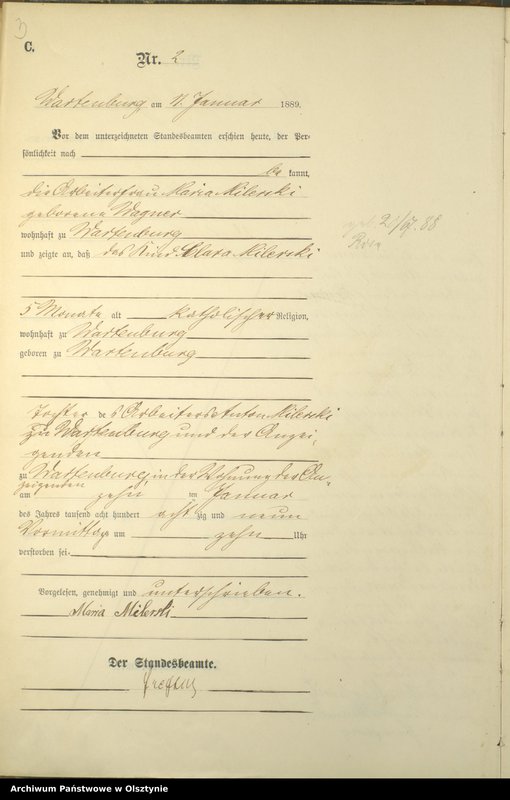 3
C.
Nr. 2
Wartenburg am 11. Januar 1889.
Vor dem unterzeichneten Standesbeamten erschien heute, der Per-
sönlichkeit nach
be kannt,
die Arbeiterfrau Maria Milerski
geborene Wagner
wohnhaft zu Wartenburg
und zeigte an, daß das Kind Clara Milerski
5 Monate alt katholischer Religion,
wohnhaft zu Wartenburg
geboren zu Wartenburg
Tochter des Arbeiters Anton Milerski
zu Wartenburg und der Anzei-
genden
zu Wartenburg, in der Wohnung der An-
zeigenden
am zehn ten Januar
des Jahres tausend acht hundert acht zig und neun
Vormittags um zehn Uhr
verstorben sei.
Vorgelesen, genehmigt und unterschrieben.
Maria Milerski
Der Standesbeamte.
Archiwum Państwowe w Olsztynie